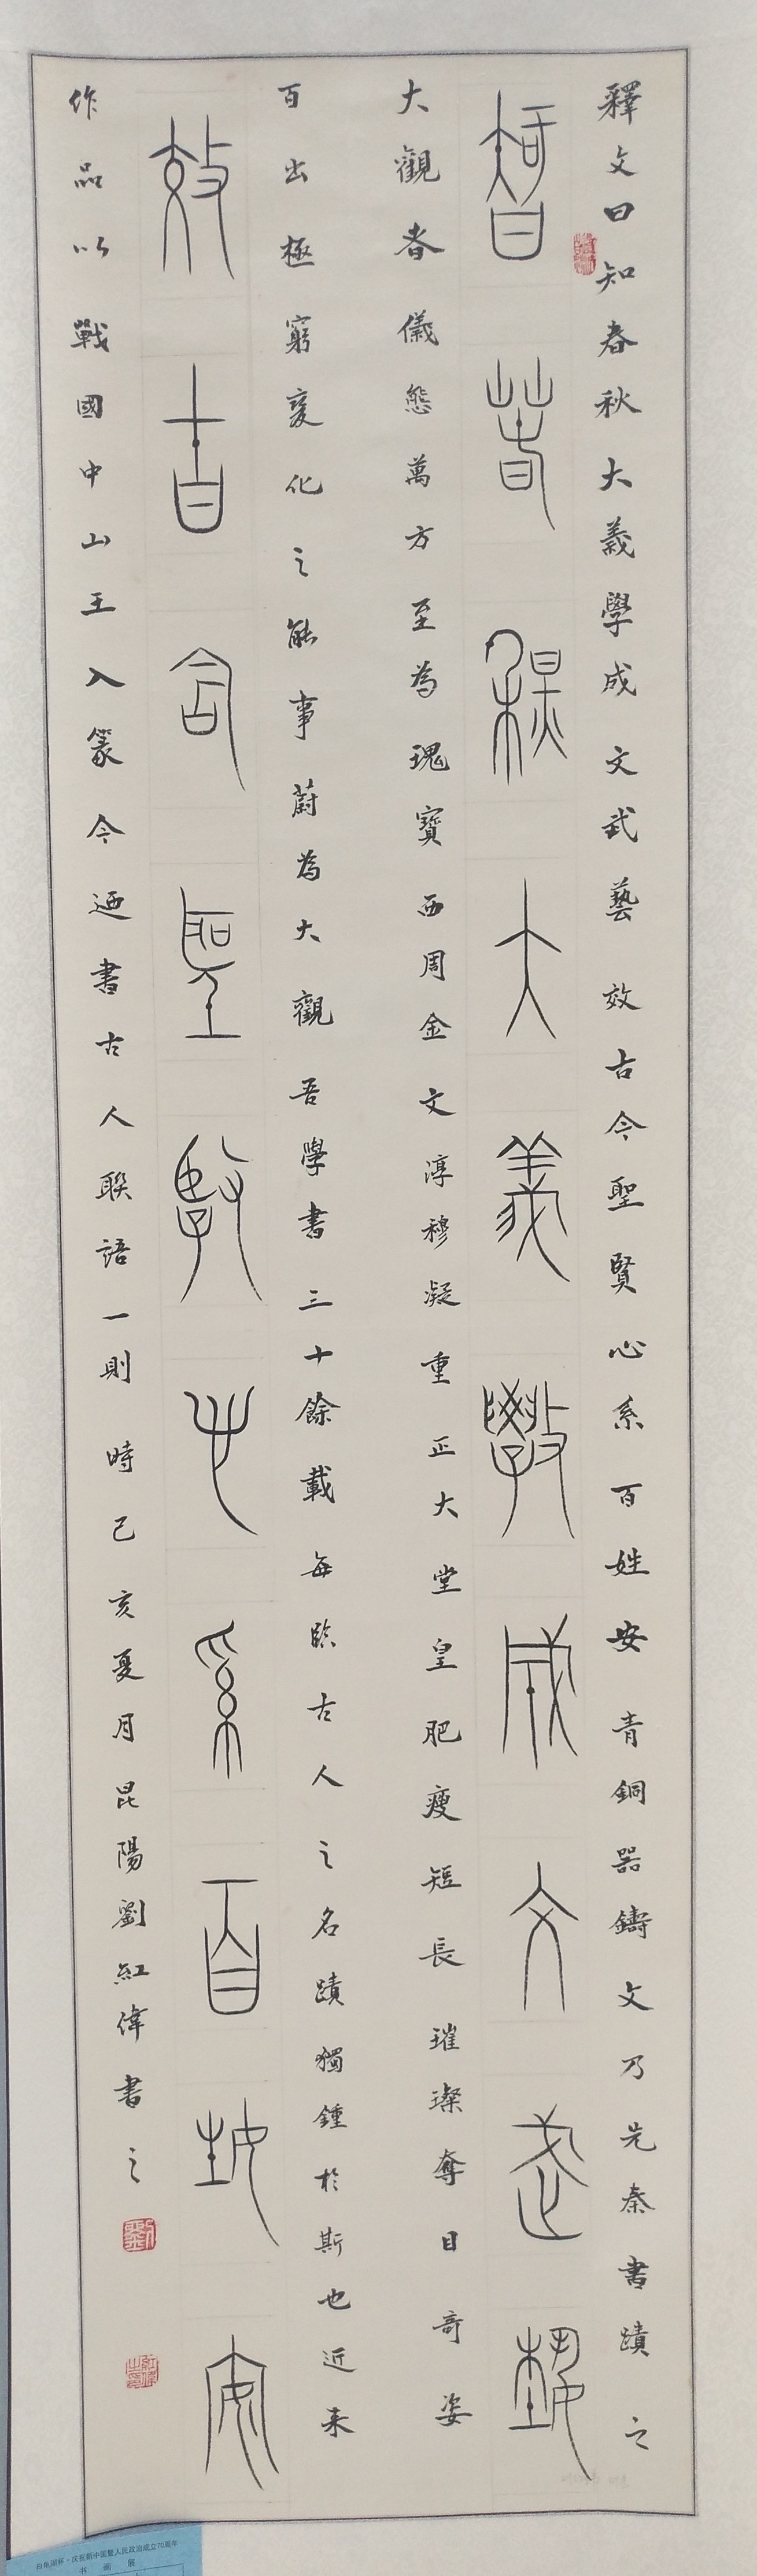 釋文曰知春秋大義學成文武藝效古今聖賢心系百姓安青銅器鑄文乃先秦書蹟之
智春秋大義學成文武藝
大觀者儀態萬方至為瑰寶西周金文淳穆凝重正大堂皇肥瘦短長璀璨奪目奇姿
百出極窮變化之能事蔚為大觀吾學書三十餘載每臨古人之名蹟獨鍾於斯也近来
效古今聖賢心系百姓安
作品以戰國中山王入篆今迺書古人聯語一則時己亥夏月昆陽劉紅偉書之
庆祝新中国暨人民政协成立70周年
书画展